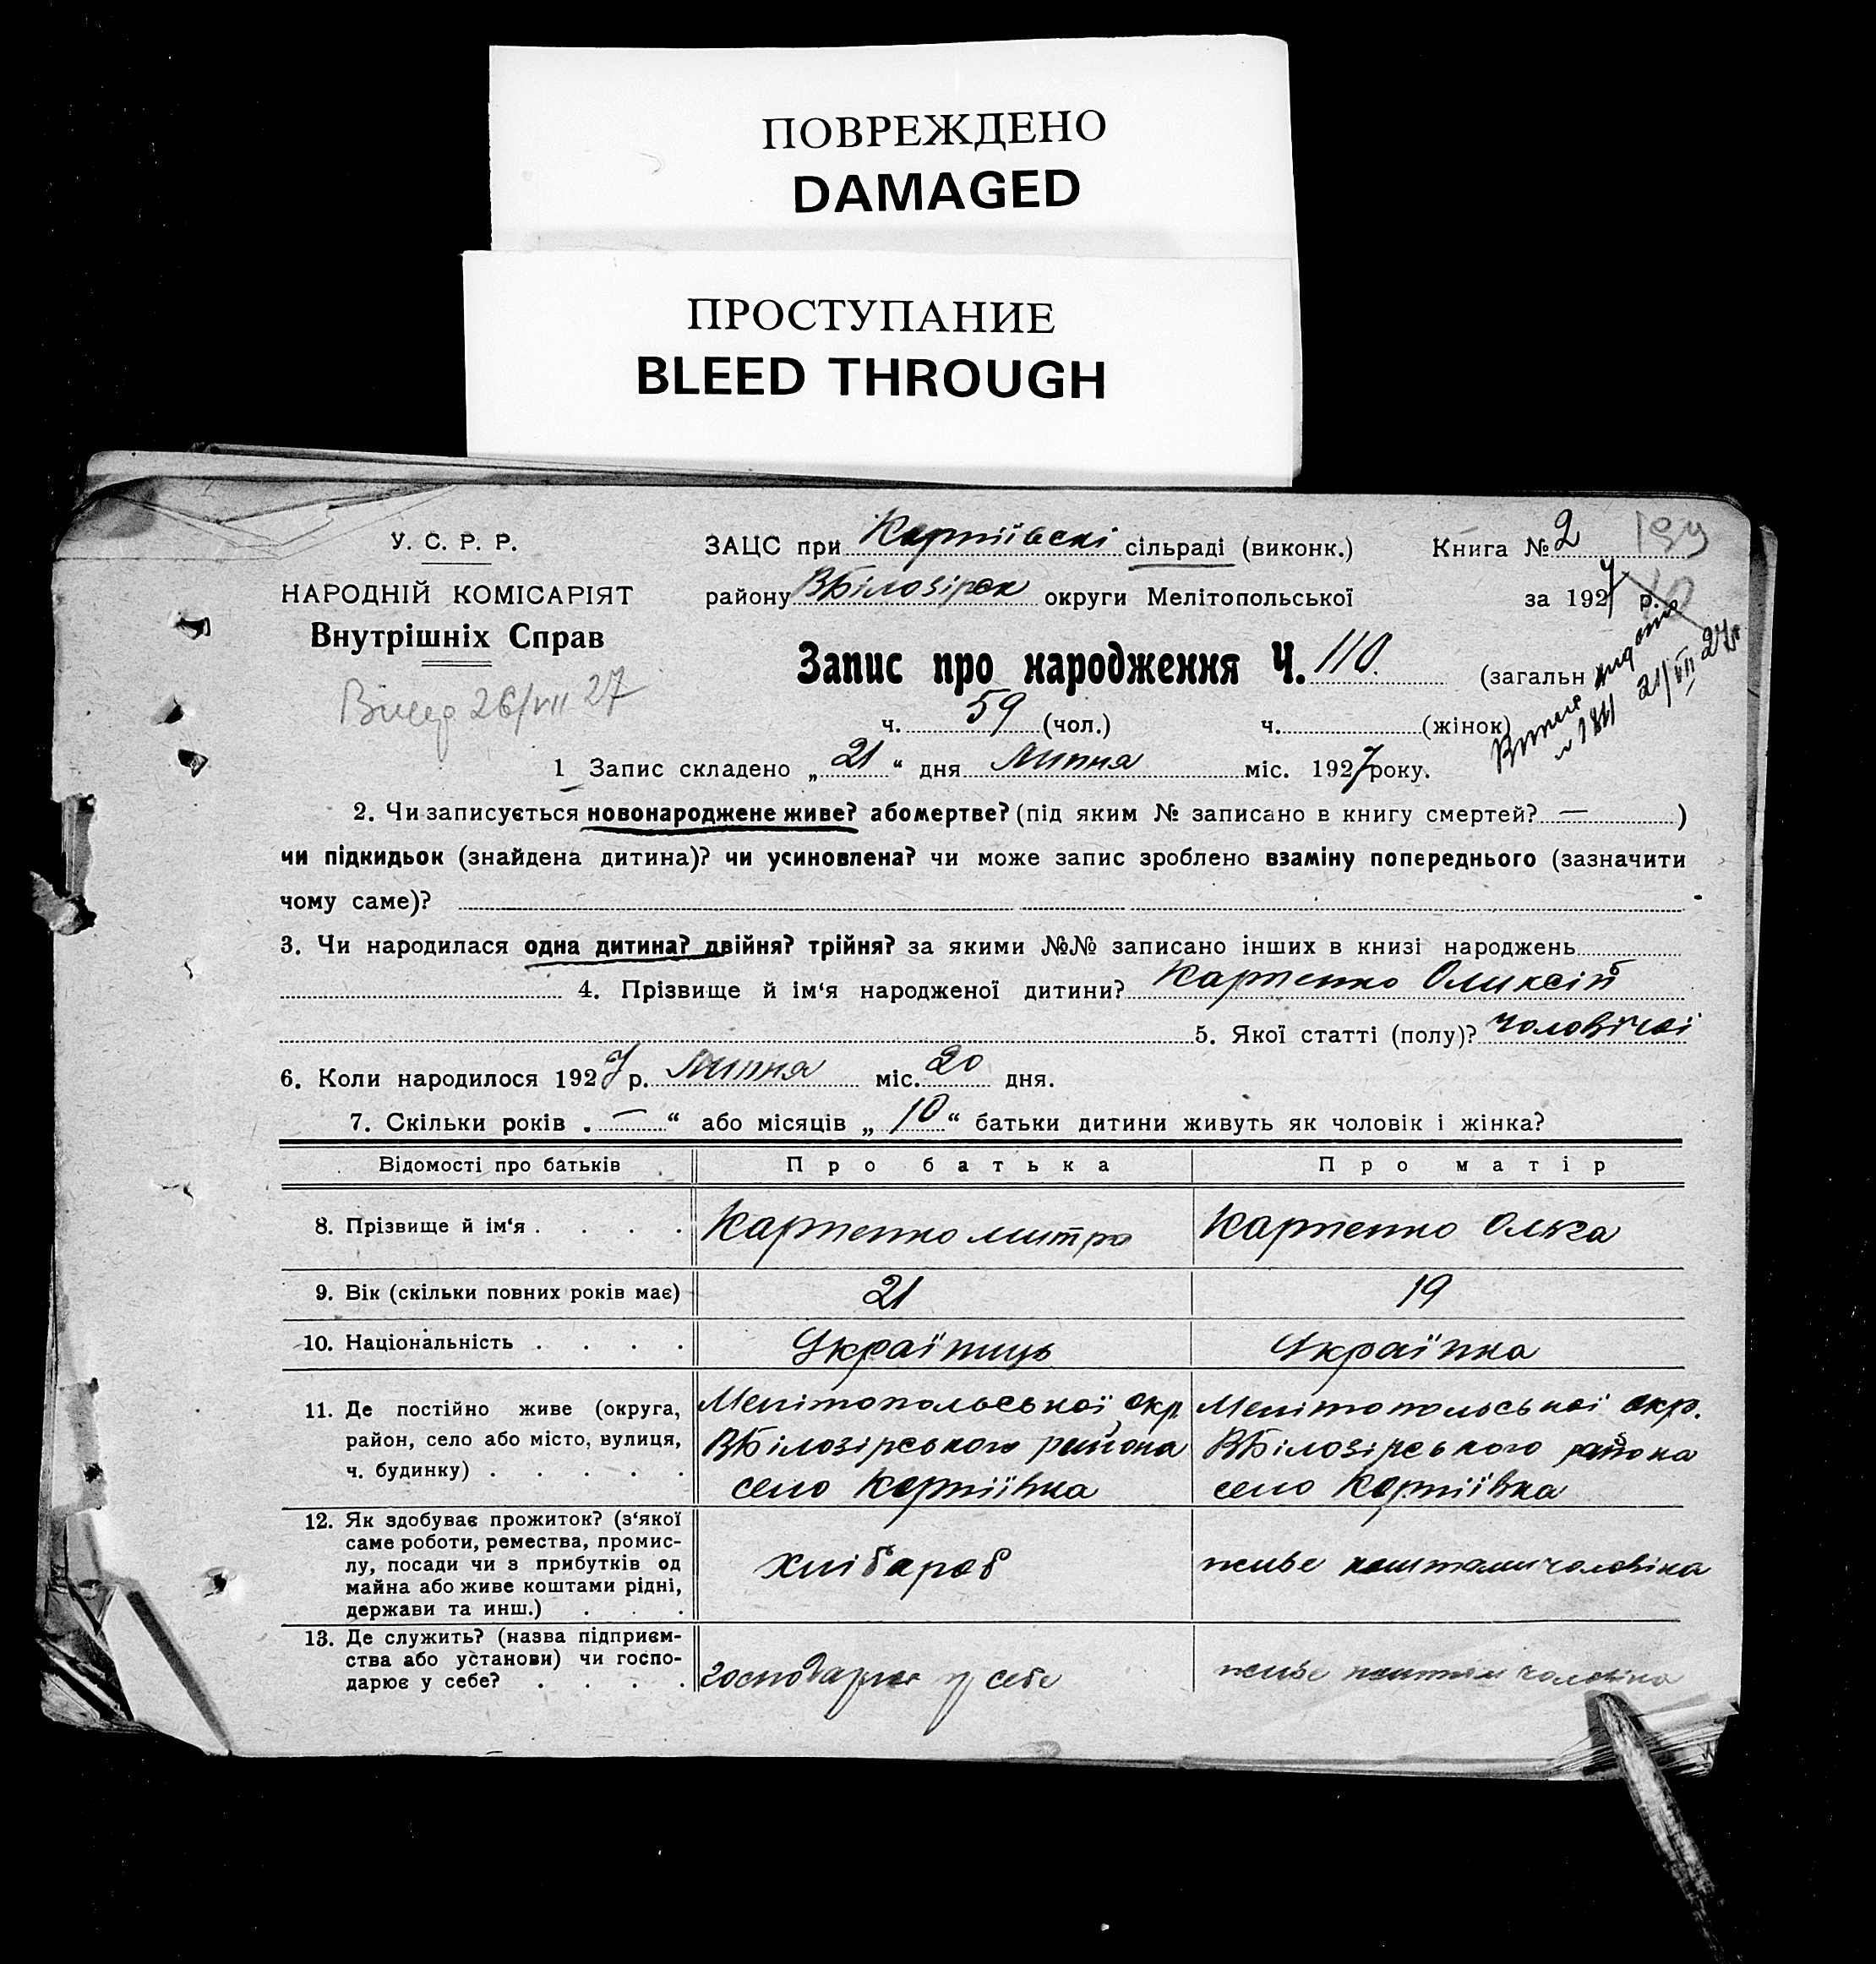 ПОВРЕЖДЕНО
DAMAGED
ПРОСТУПАНИЕ
BLEED THROUGH
У. С. Р. Р.
НАРОДНІЙ КОМІСАРІЯТ
Внутрішніх Справ
ЗАЦС при сільраді (виконк.)
Книга № 2
199
району ВБілозірск округи Мелітопольської
за 1927 р.
Запис про народження Ч. 110. (загальн
ч. 59 (чол.) ч. (жінок)
Випис видано
№ 1811 21/VII 27р
26/VII 27
1 Запис складено „21“ дня Липня міс. 1927 року.
2. Чи записується новонароджене живе? або мертве? (під яким № записано в книгу смертей? — )
чи підкидьок (знайдена дитина)? чи усиновлена? чи може запис зроблено взаміну попереднього (зазначити
чому саме)?
3. Чи народилася одна дитина? двійня? трійня? за якими №№ записано інших в книзі народжень
4. Прізвище й ім‘я народженої дитини? Карпенко Оликсій
5. Якої статті (полу)? чоловічої
6. Коли народилося 1927 р. Липня міс. 20 дня.
7. Скільки років „—“ або місяців „10“ батьки дитини живуть як чоловік і жінка?
Відомості про батьків Про батька Про матір
8. Прізвище й ім‘я . . . . Карпенко Митро Карпенко Ольга
9. Вік (скільки повних років має) 21 19
10. Національність . . . . Україниць Українка
11. Де постійно живе (округа,
район, село або місто, вулиця,
ч. будинку) . . . . .
Мелітопольської окр.
ВБілозірського района
село
Мелітопольської окр.
ВБілозірського района
село
12. Як здобуває прожиток? (з‘якої
саме роботи, ремества, промис-
лу, посади чи з прибутків од
майна або живе коштами рідні,
держави та инш.) . . .
хлібароб
живе коштами чоловіка
13. Де служить? (назва підприєм-
ства або установи) чи госпо-
дарює у себе? . . . .
господарює у себе
живе коштами чоловіка